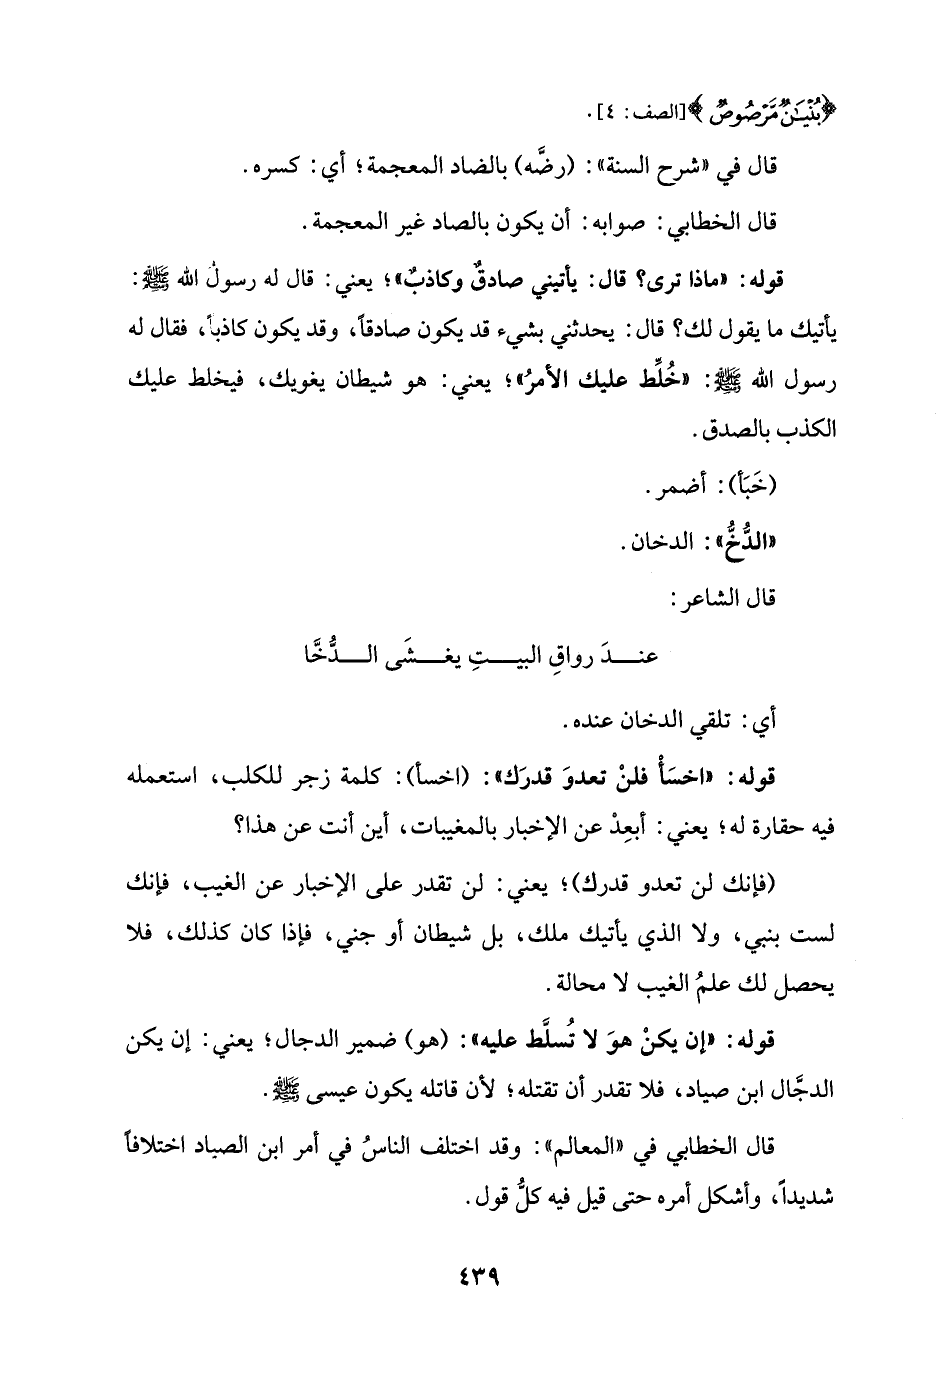 ﴿بُنْيَـٰنٌ مَّرْصُوصٌ﴾ [الصف: ٤].
قال في «شرح السنة»: (رضَّه) بالضاد المعجمة؛ أي: كسره.
قال الخطابي: صوابه: أن يكون بالصاد غير المعجمة.
قوله: «ماذا ترى؟ قال: يأتيني صادقٌ وكاذبٌ»؛ يعني: قال له رسولُ الله ﷺ:
يأتيك ما يقول لك؟ قال: يحدثني بشيء قد يكون صادقاً، وقد يكون كاذباً، فقال له
رسول الله ﷺ: «خُلِّط عليك الأمرُ»؛ يعني: هو شيطان يغويك، فيخلط عليك
الكذب بالصدق.
(خَبَأ): أضمر.
«الدُّخُّ»: الدخان.
قال الشاعر:
عنـــدَ رواقِ البيـــتِ يغـــشَى الـــدُّخَّا
أي: تلقي الدخان عنده.
قوله: «اخسَأْ فلنْ تعدوَ قدرَك»: (اخسأ): كلمة زجر للكلب، استعمله
فيه حقارة له؛ يعني: أبعِدْ عن الإخبار بالمغيبات، أين أنت عن هذا؟
(فإنك لن تعدو قدرك)؛ يعني: لن تقدر على الإخبار عن الغيب، فإنك
لست بنبي، ولا الذي يأتيك ملك، بل شيطان أو جني، فإذا كان كذلك، فلا
يحصل لك علمُ الغيب لا محالة.
قوله: «إن يكنْ هوَ لا تُسلَّط عليه»: (هو) ضمير الدجال؛ يعني: إن يكن
الدجَّال ابن صياد، فلا تقدر أن تقتله؛ لأن قاتله يكون عيسى ﷺ.
قال الخطابي في «المعالم»: وقد اختلف الناسُ في أمر ابن الصياد اختلافاً
شديداً، وأشكل أمره حتى قيل فيه كلُّ قول.
٤٣٩